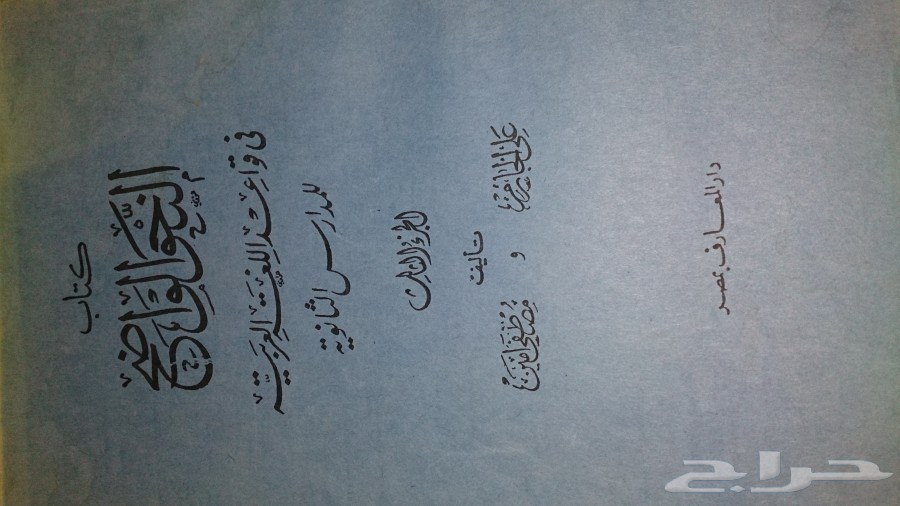 كتاب
النحو الواضح
في قواعد اللغة العربية
للمدارس الثانوية
الجزء الثالث
تأليف
علي الجارم و مصطفى أمين
دار المعارف بمصر
حراج